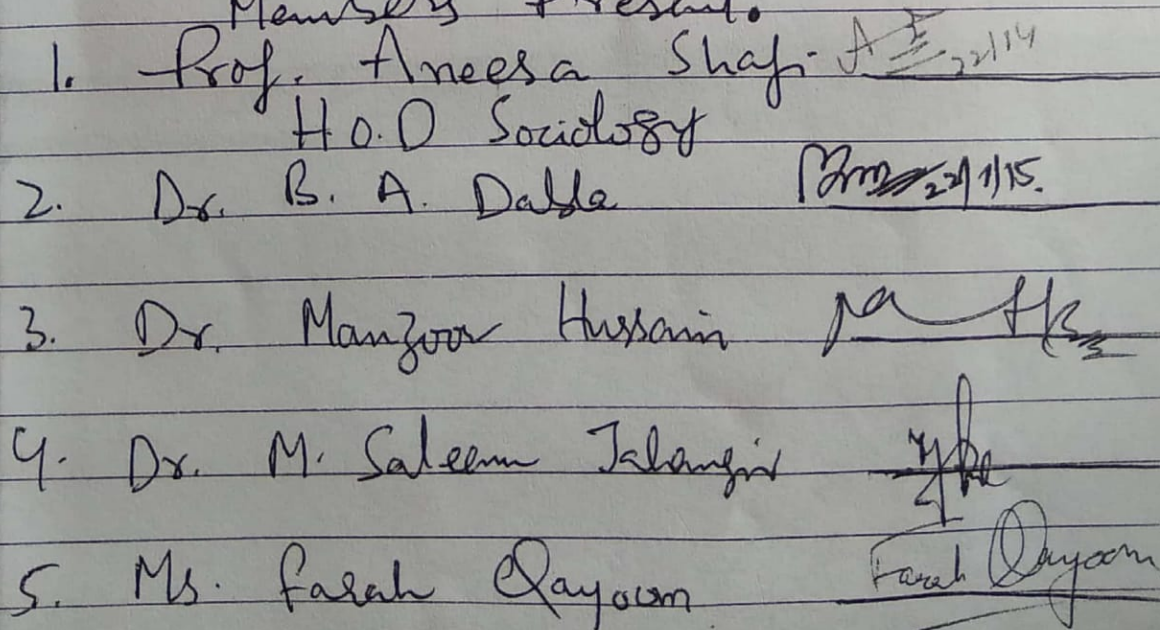 Members Present.
1. Prof. Aneesa Shafi 22/14
H O.D Sociology
2. Dr. B. A. Dabla 22/1/15.
3. Dr. Manzoor Hussain
4. Dr. M. Saleem Jahangir
5. Ms. Farah Qayoom Farah Qayoom